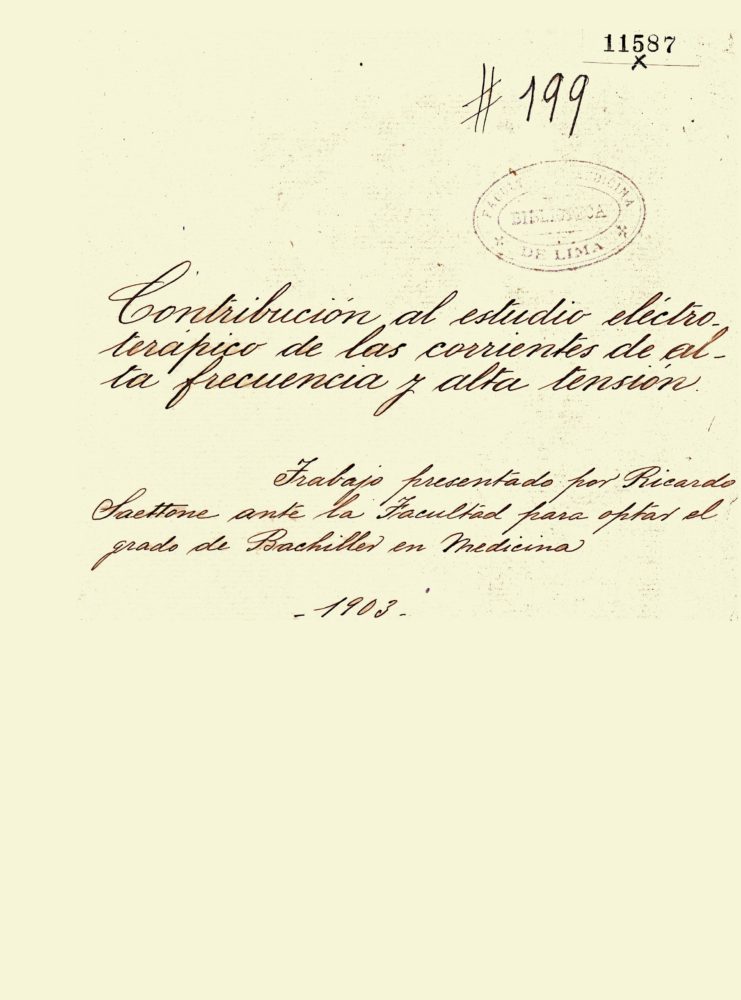 11587
x
# 199
FACULTAD DE MEDICINA
BIBLIOTECA
DE LIMA
Contribución al estudio eléctro-
terápico de las corrientes de al-
ta frecuencia y alta tensión.
Trabajo presentado por Ricardo
Saettone ante la Facultad para optar el
grado de Bachiller en Medicina
- 1903 -